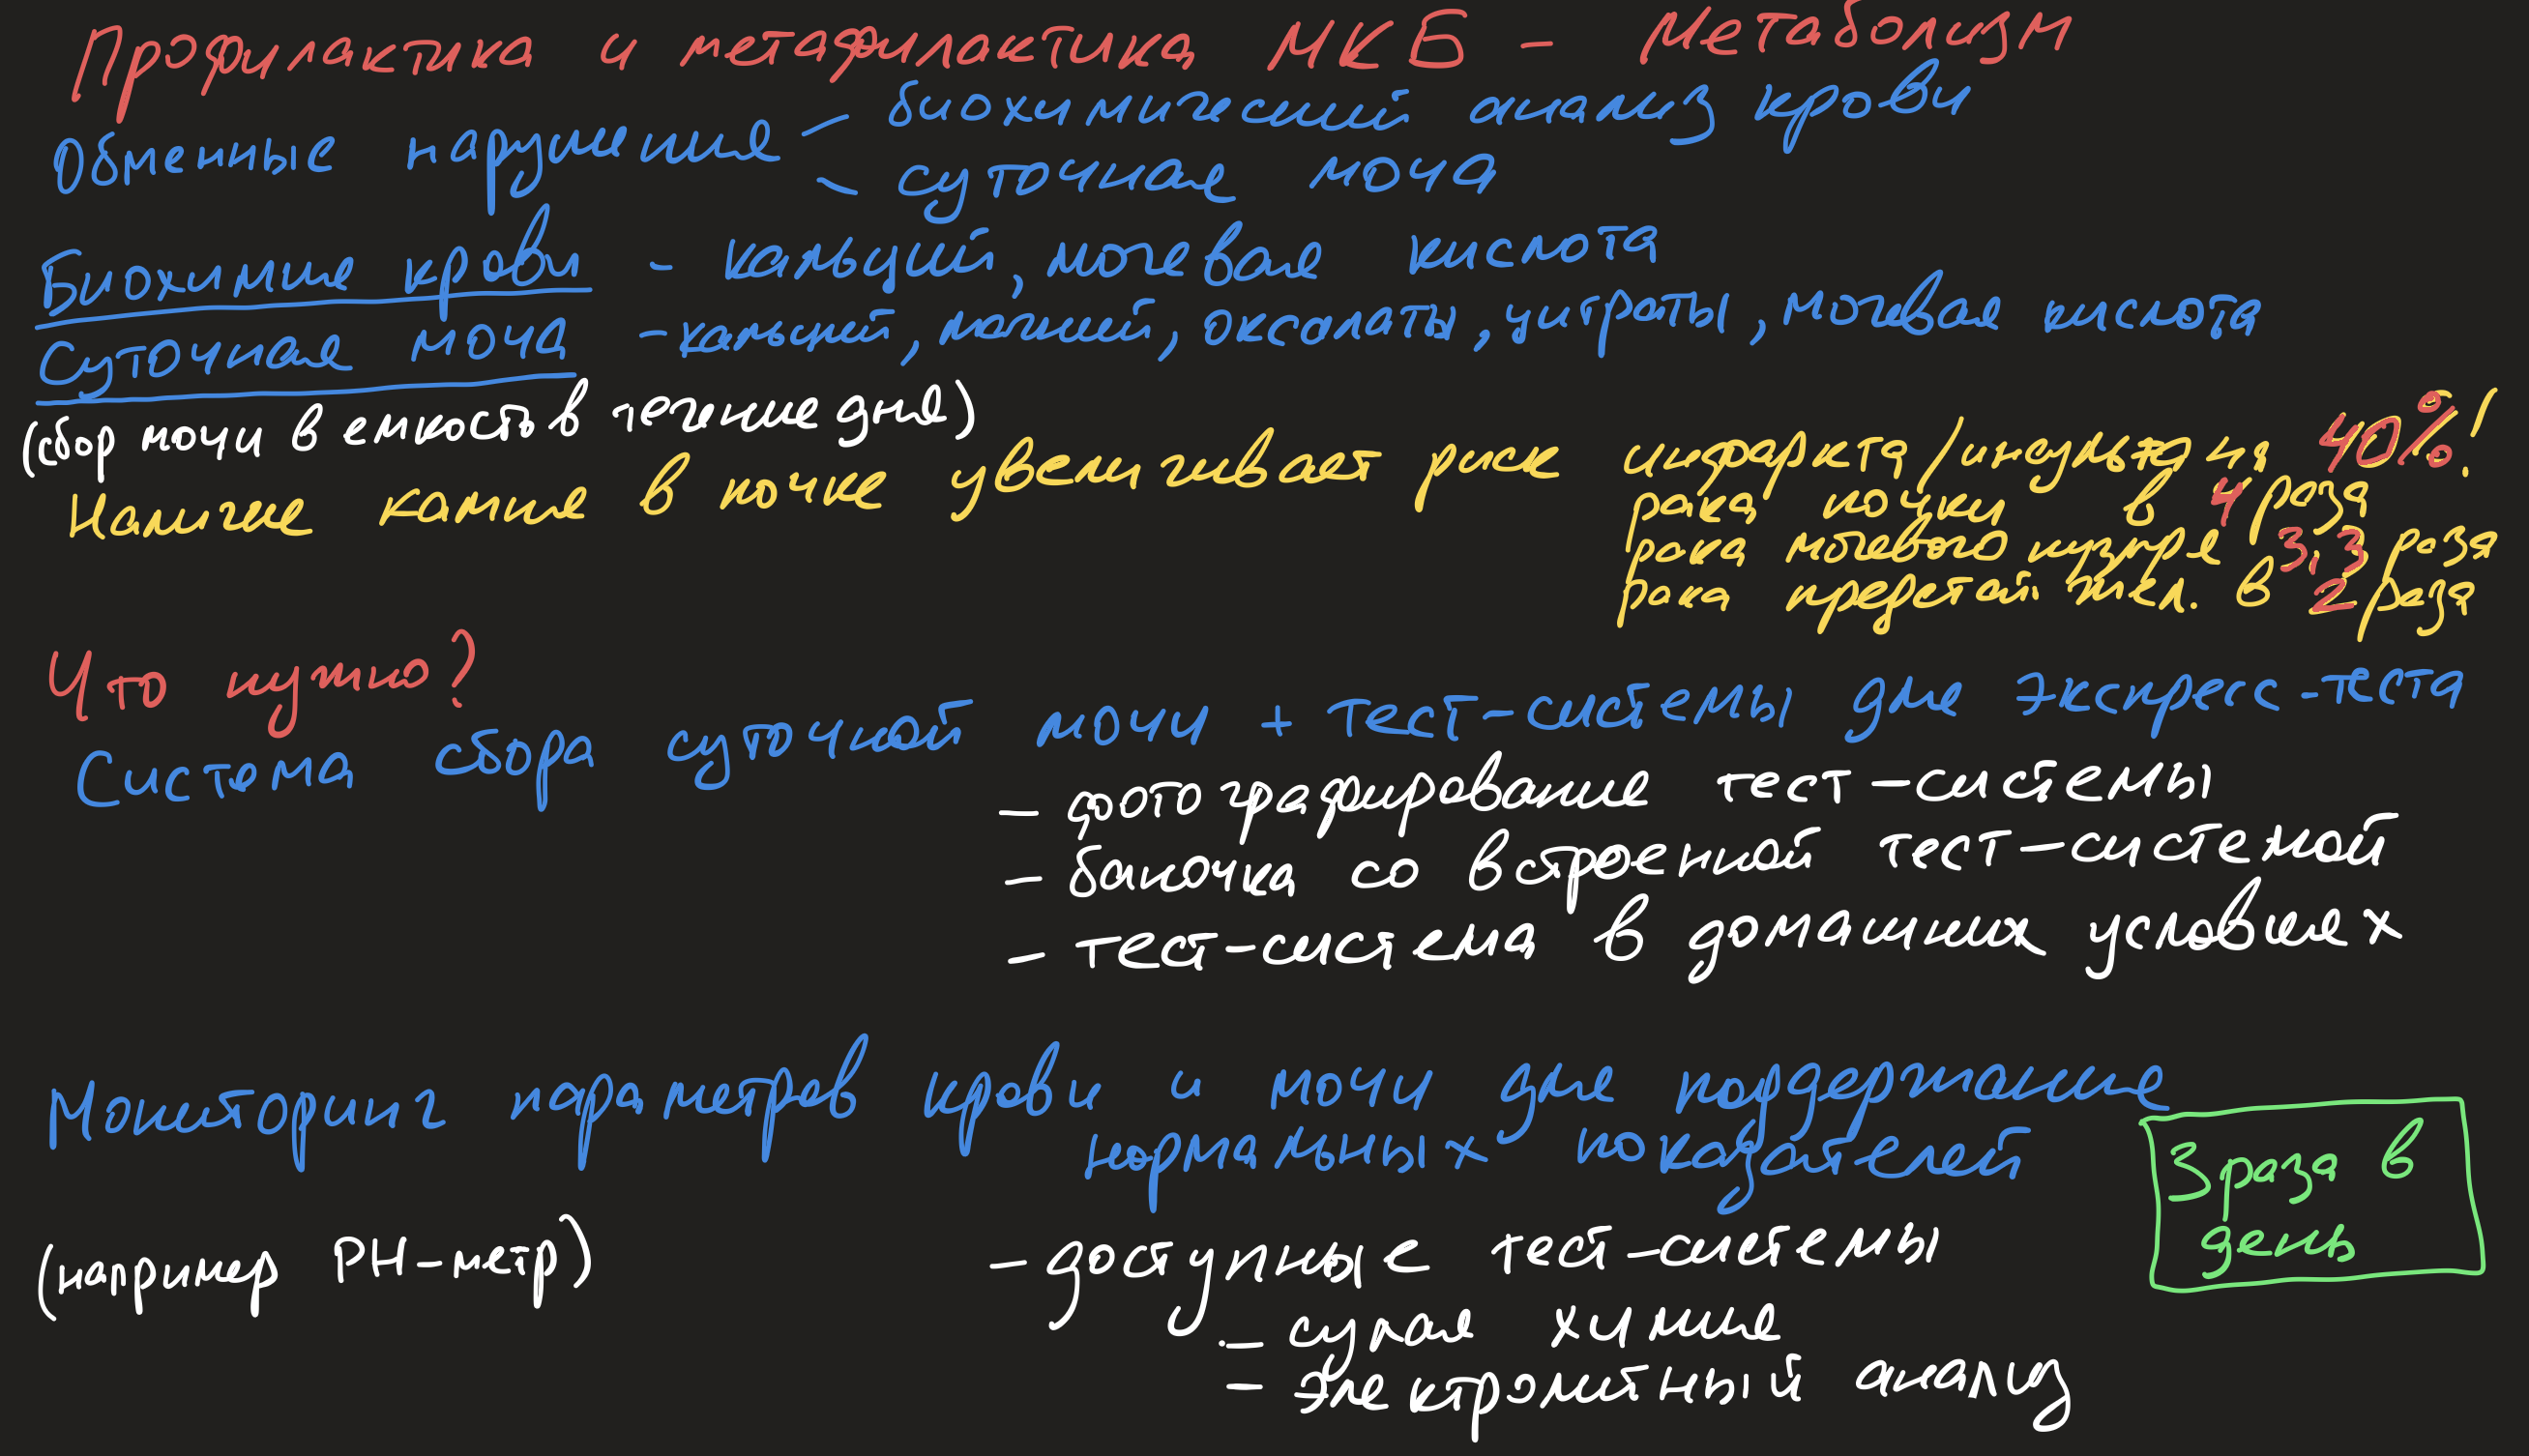 Профилактика и метафилактика МКБ - Метаболизм
Обменные нарушения - биохимический анализ крови
- суточная моча
Биохимия крови - кальций, мочевая кислота
Суточная моча - кальций, магний, оксалаты, цитраты, мочевая кислота
(сбор мочи в емкость в течение дня)
Наличие камня в почке увеличивает риск инфаркта/инсульта на 40%!
рака почки в 4 раза
рака мочевого пузыря 3,3 раза
рака предстат. жел. в 2 раза
Что нужно?
Система сбора суточной мочи + тест-системы для экспресс-теста
- фотографирование тест-системы
- баночка со встроенной тест-системой
- тест-система в домашних условиях
Мониторинг параметров крови и мочи для поддержания
нормальных показателей
3 раза в
день
(например PH-метр)
- доступные тест-системы
- сухая химия
- электролитный анализ